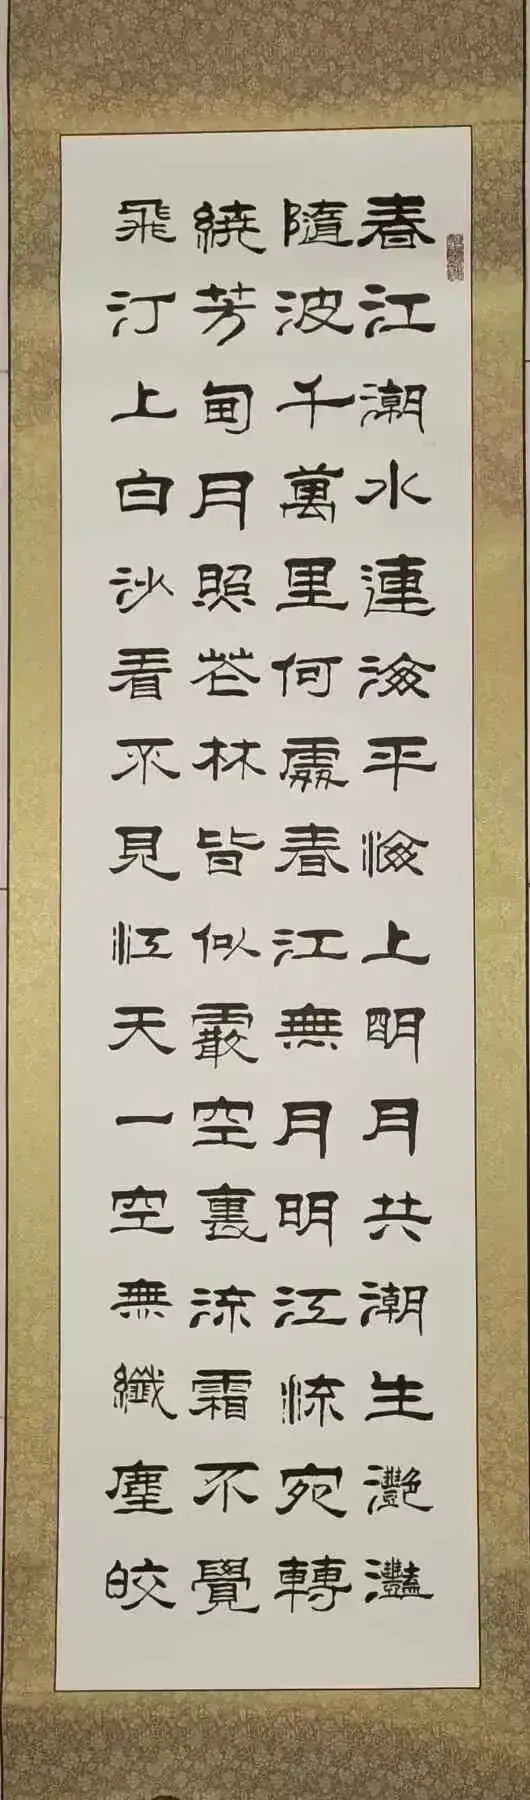 春江潮水連海平海上明月共潮生灧灩
隨波千萬里何處春江無月明江流宛轉
繞芳甸月照花林皆似霰空裏流霜不覺
飛汀上白沙看不見江天一空無纖塵皎